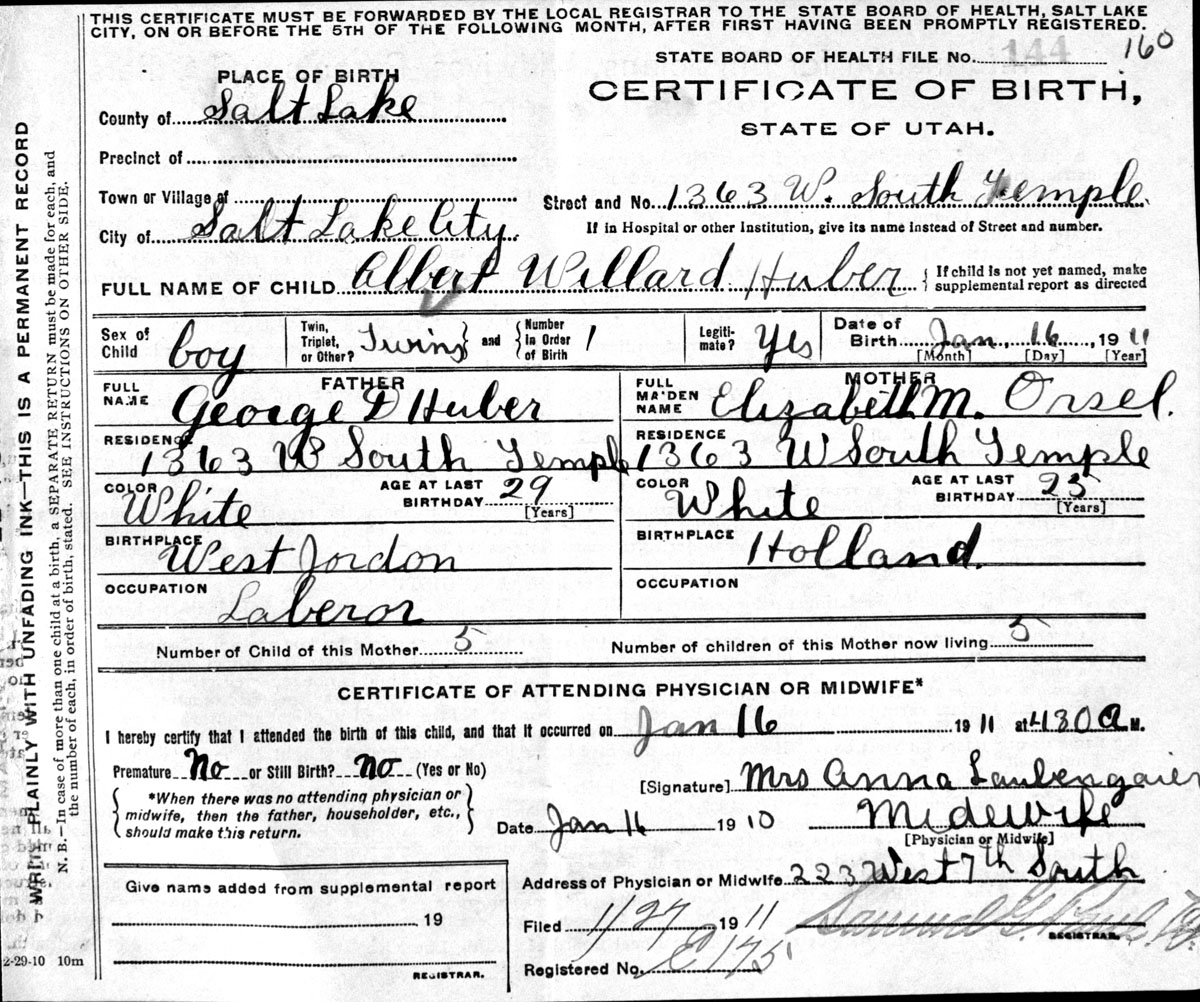 THIS CERTIFICATE MUST BE FORWARDED BY THE LOCAL REGISTRAR TO THE STATE BOARD OF HEALTH, SALT LAKE
CITY, ON OR BEFORE THE 5TH OF THE FOLLOWING MONTH, AFTER FIRST HAVING BEEN PROMPTLY REGISTERED.
STATE BOARD OF HEALTH FILE No. 144 160
PLACE OF BIRTH
CERTIFICATE OF BIRTH,
County of Salt Lake
STATE OF UTAH.
Precinct of
Town or Village of
Street and No. 1363 W. South Temple.
City of Salt Lake City.
If in Hospital or other Institution, give its name instead of Street and number.
FULL NAME OF CHILD Albert Willard Huber
If child is not yet named, make
supplemental report as directed
Sex of
Child boy
Twin,
Triplet,
or Other? Twins
and
Number
in Order
of Birth 1
Legiti-
mate? Yes
Date of
Birth Jan. 16, 1911
[Month] [Day] [Year]
FATHER
FULL
NAME George D Huber
RESIDENCE
1363 W South Temple
COLOR
White
AGE AT LAST
BIRTHDAY 29
[Years]
BIRTHPLACE
West Jordon
OCCUPATION
Laberor
MOTHER
FULL
MAIDEN
NAME Elizabeth M. Orsel.
RESIDENCE
1363 W South Temple
COLOR
White
AGE AT LAST
BIRTHDAY 25
[Years]
BIRTHPLACE
Holland.
OCCUPATION
Number of Child of this Mother 5
Number of children of this Mother now living 5
CERTIFICATE OF ATTENDING PHYSICIAN OR MIDWIFE*
I hereby certify that I attended the birth of this child, and that it occurred on Jan 16 1911 at 430 A M.
Premature No or Still Birth? No (Yes or No)
[Signature] Mrs Anna Laubengaier
*When there was no attending physician or
midwife, then the father, householder, etc.,
should make this return.
Date Jan 16 1910 Midewife
[Physician or Midwife]
Give name added from supplemental report
19
REGISTRAR.
Address of Physician or Midwife 223 West 7th South
Filed 1/27 1911
REGISTRAR.
Registered No. E175
2-29-10 10m
WRITE PLAINLY WITH UNFADING INK—THIS IS A PERMANENT RECORD
N. B.—In case of more than one child at a birth, a SEPARATE RETURN must be made for each, and
the number of each, in order of birth, stated. SEE INSTRUCTIONS ON OTHER SIDE.